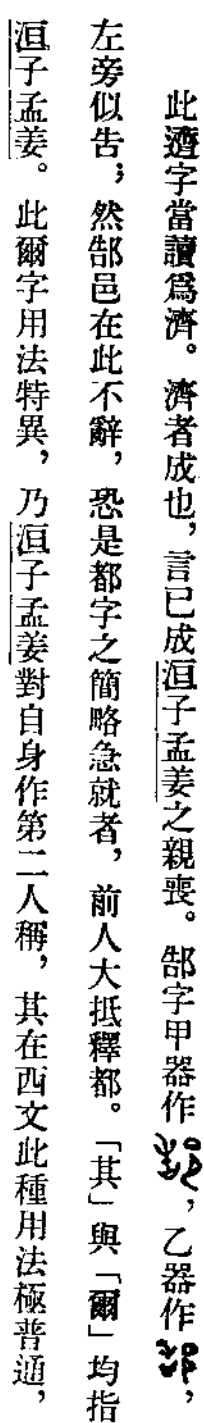 此䢢字當讀爲濟。濟者成也,言已成洹子孟姜之親喪。郜字甲器作,乙器作,
左旁似告;然郜邑在此不辭,恐是都字之簡略急就者,前人大抵釋都。「其」與「爾」均指
洹子孟姜。此爾字用法特異,乃洹子孟姜對自身作第二人稱,其在西文此種用法極普通,